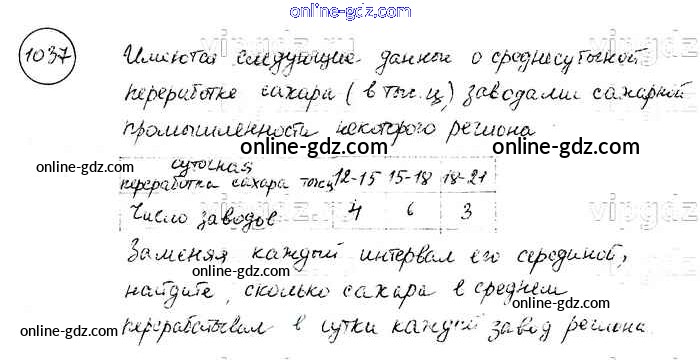 online-gdz.com
1037 Имеются следующие данные о среднесуточной
переработке сахара (в тыс.ц) заводами сахарной
промышленности некоторого региона
online-gdz.com online-gdz.com online-gdz.com
суточная
переработка сахара тыс.ц 12-15 15-18 18-21
Число заводов 4 6 3
Заменяя каждый интервал его серединой,
online-gdz.com online-gdz.com
найдите, сколько сахара в среднем
online-gdz.com online-gdz.com
перерабатывал в сутки каждый завод региона.
vipgdz
vipgdz